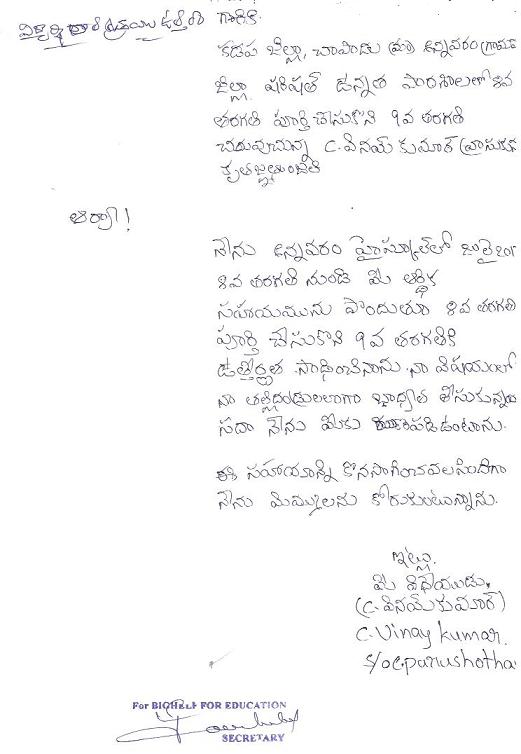 గారికి
కడప జిల్లా, చాపాడు (మ) అన్నవరం (గ్రామ
జిల్లా పరిషత్ ఉన్నత పాఠశాలలో 8వ
తరగతి పూర్తి చేసుకొని 9వ తరగతి
చదువుచున్న C. వినయ్ కుమార్ వ్రాసుకున
కృతజ్ఞతలు
ఆర్యా!
నేను అన్నవరం హైస్కూల్‌లో జులై 201
8వ తరగతి నుండి మీ ఆర్థిక
సహాయమును పొందుతూ 8వ తరగతి
పూర్తి చేసుకొని 9వ తరగతికి
ఉత్తీర్ణత సాధించినాను. నా విషయంలో
నా తల్లిదండ్రులలాగా బాధ్యత తీసుకున్న
సదా నేను మీకు రుణపడిఉంటాను.
ఈ సహాయాన్ని కొనసాగించవలసిందిగా
నేను మిమ్ములను కోరుకుంటున్నాను.
ఇట్లు
మీ విధేయుడు,
(C. వినయ్ కుమార్)
C. Vinay kumar.
S/o C. Parushotha
For BIGHELP FOR EDUCATION
SECRETARY